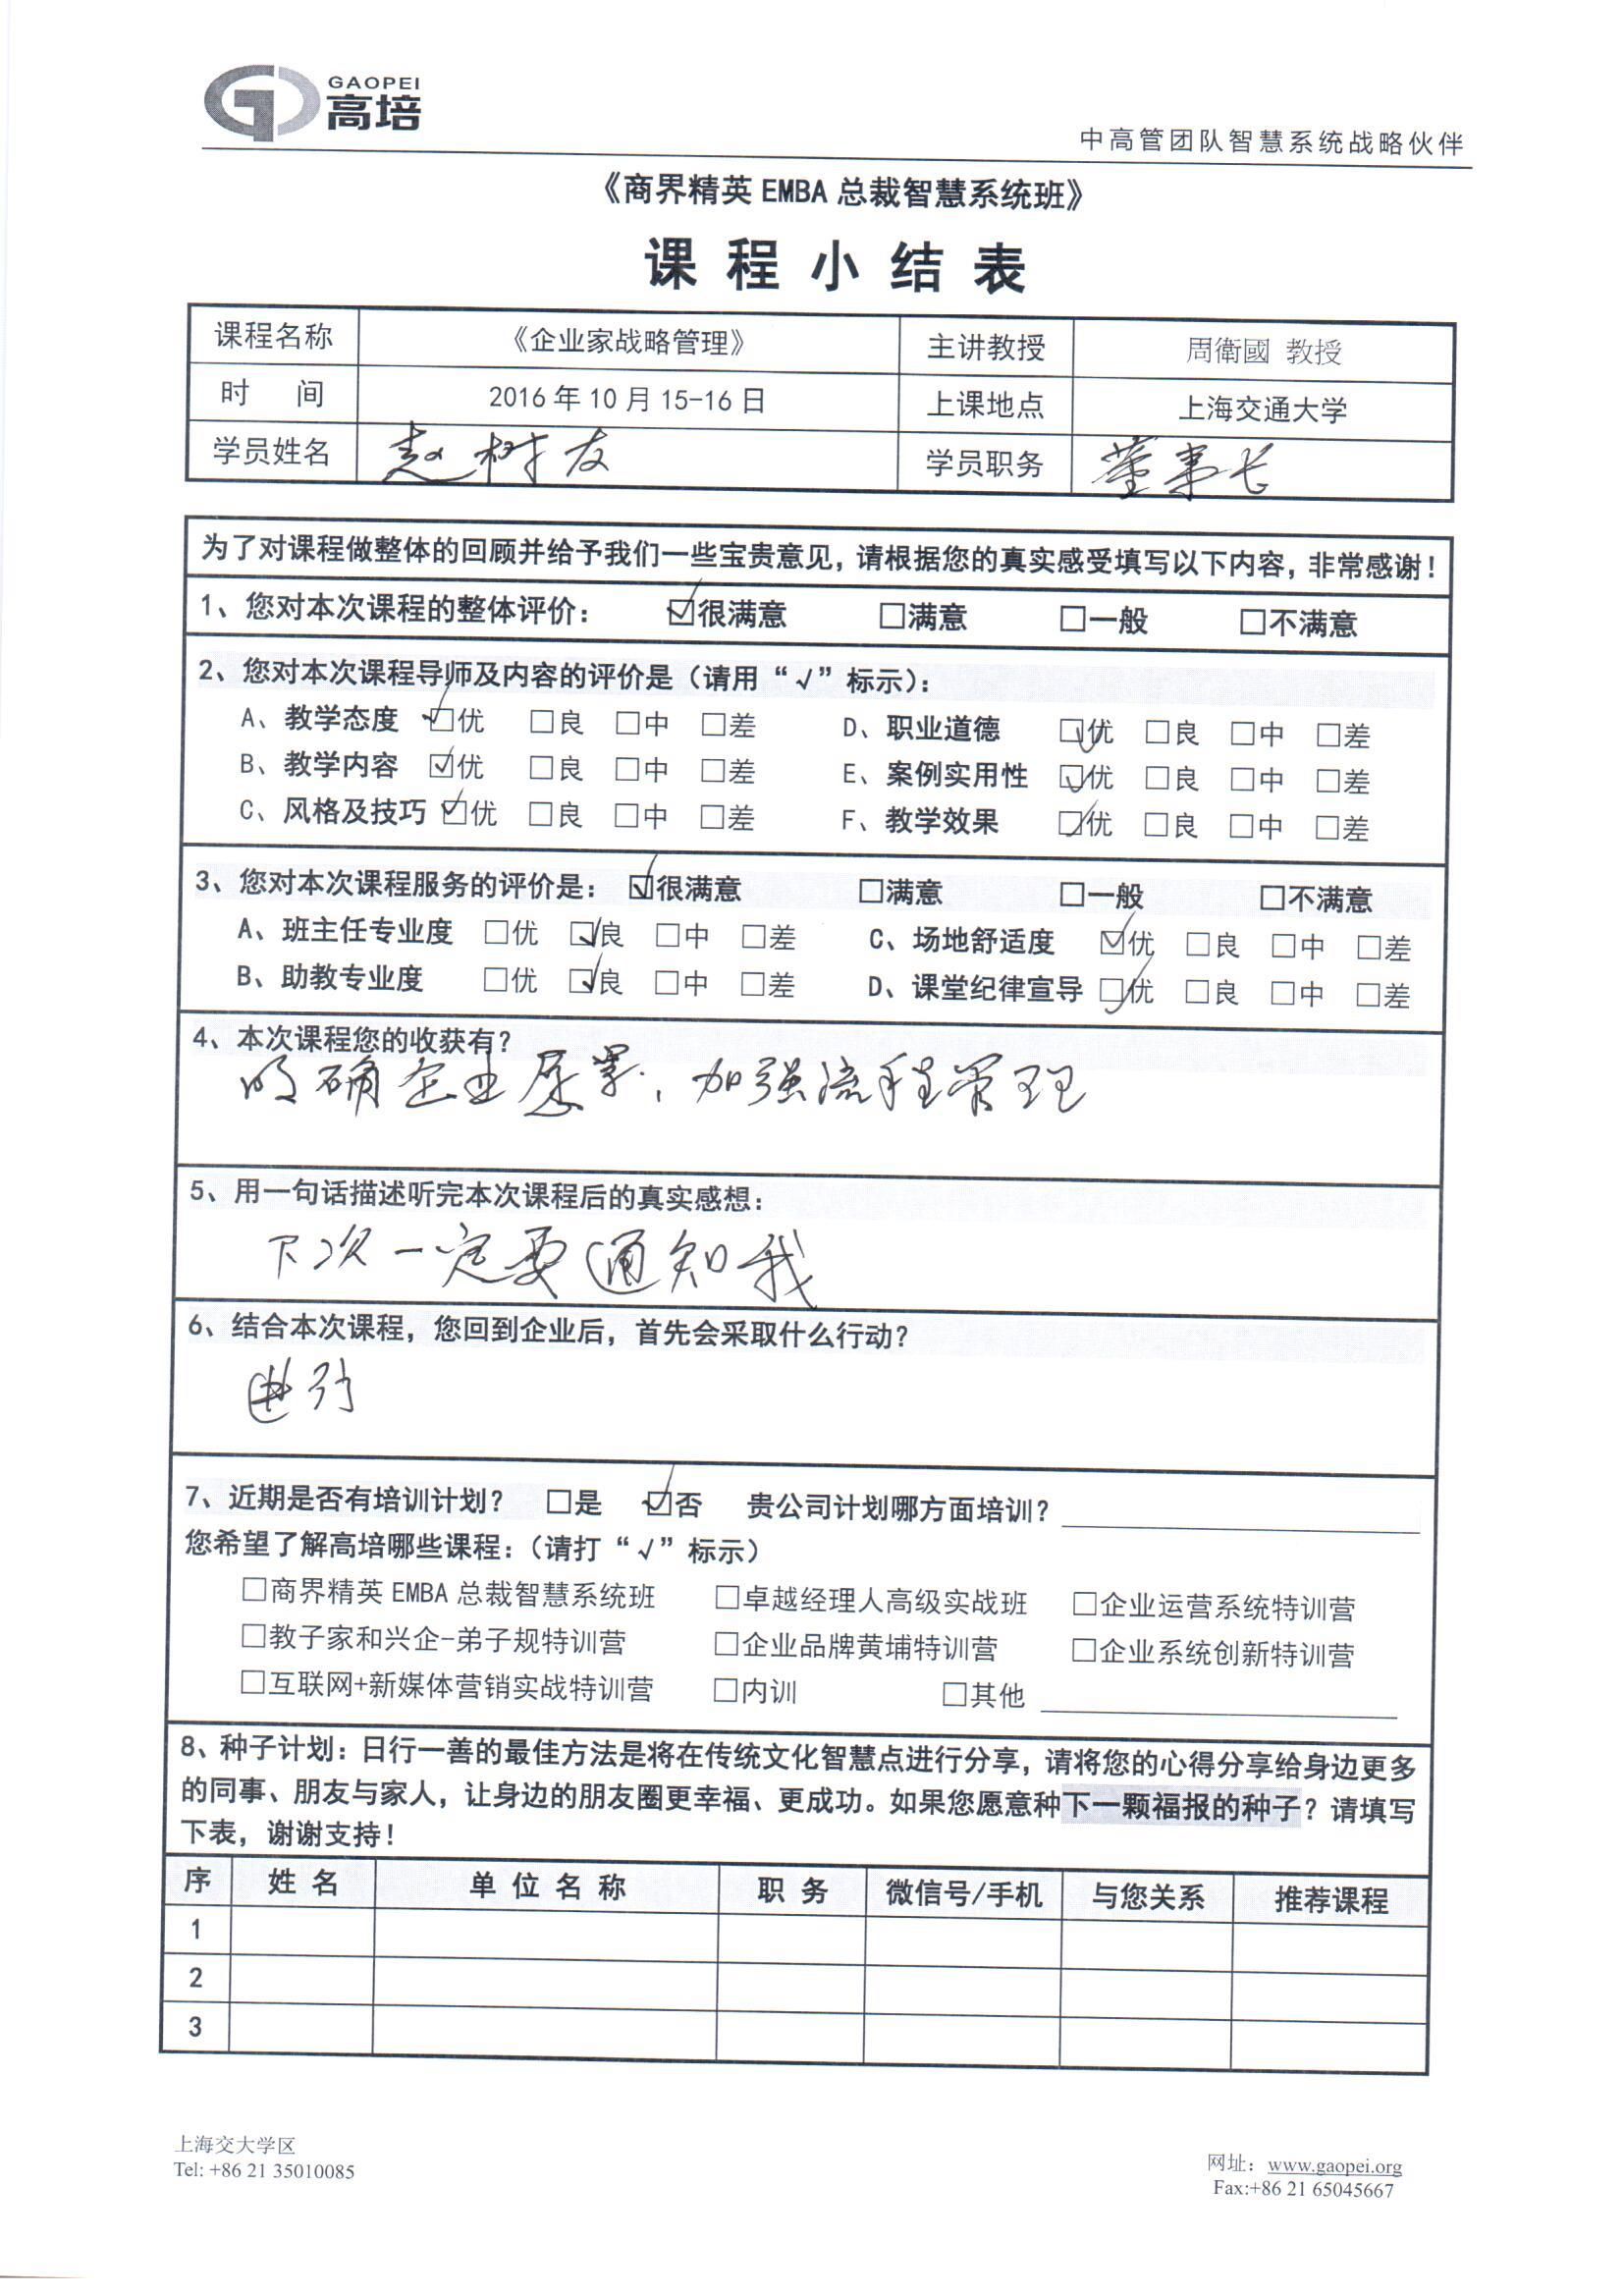 GAOPEI
高培
中高管团队智慧系统战略伙伴
《商界精英 EMBA 总裁智慧系统班》
课程小结表
课程名称 《企业家战略管理》 主讲教授 周衛國 教授
时 间 2016 年 10 月 15-16 日 上课地点 上海交通大学
学员姓名 赵树友 学员职务 董事长
为了对课程做整体的回顾并给予我们一些宝贵意见，请根据您的真实感受填写以下内容，非常感谢！
1、您对本次课程的整体评价： ☑很满意 □满意 □一般 □不满意
2、您对本次课程导师及内容的评价是（请用“√”标示）：
A、教学态度 ☑优 □良 □中 □差 D、职业道德 ☑优 □良 □中 □差
B、教学内容 ☑优 □良 □中 □差 E、案例实用性 ☑优 □良 □中 □差
C、风格及技巧 ☑优 □良 □中 □差 F、教学效果 ☑优 □良 □中 □差
3、您对本次课程服务的评价是： ☑很满意 □满意 □一般 □不满意
A、班主任专业度 □优 ☑良 □中 □差 C、场地舒适度 ☑优 □良 □中 □差
B、助教专业度 □优 ☑良 □中 □差 D、课堂纪律宣导 ☑优 □良 □中 □差
4、本次课程您的收获有？
明确企业愿景，加强流程管理
5、用一句话描述听完本次课程后的真实感想：
下次一定要通知我
6、结合本次课程，您回到企业后，首先会采取什么行动？
7、近期是否有培训计划？ □是 ☑否 贵公司计划哪方面培训？
您希望了解高培哪些课程：（请打“√”标示）
□商界精英 EMBA 总裁智慧系统班 □卓越经理人高级实战班 □企业运营系统特训营
□教子家和兴企-弟子规特训营 □企业品牌黄埔特训营 □企业系统创新特训营
□互联网+新媒体营销实战特训营 □内训 □其他
8、种子计划：日行一善的最佳方法是将在传统文化智慧点进行分享，请将您的心得分享给身边更多
的同事、朋友与家人，让身边的朋友圈更幸福、更成功。如果您愿意种下一颗福报的种子？请填写
下表，谢谢支持！
序 姓 名 单 位 名 称 职 务 微信号/手机 与您关系 推荐课程
1
2
3
上海交大学区
Tel: +86 21 35010085
网址：www.gaopei.org
Fax:+86 21 65045667